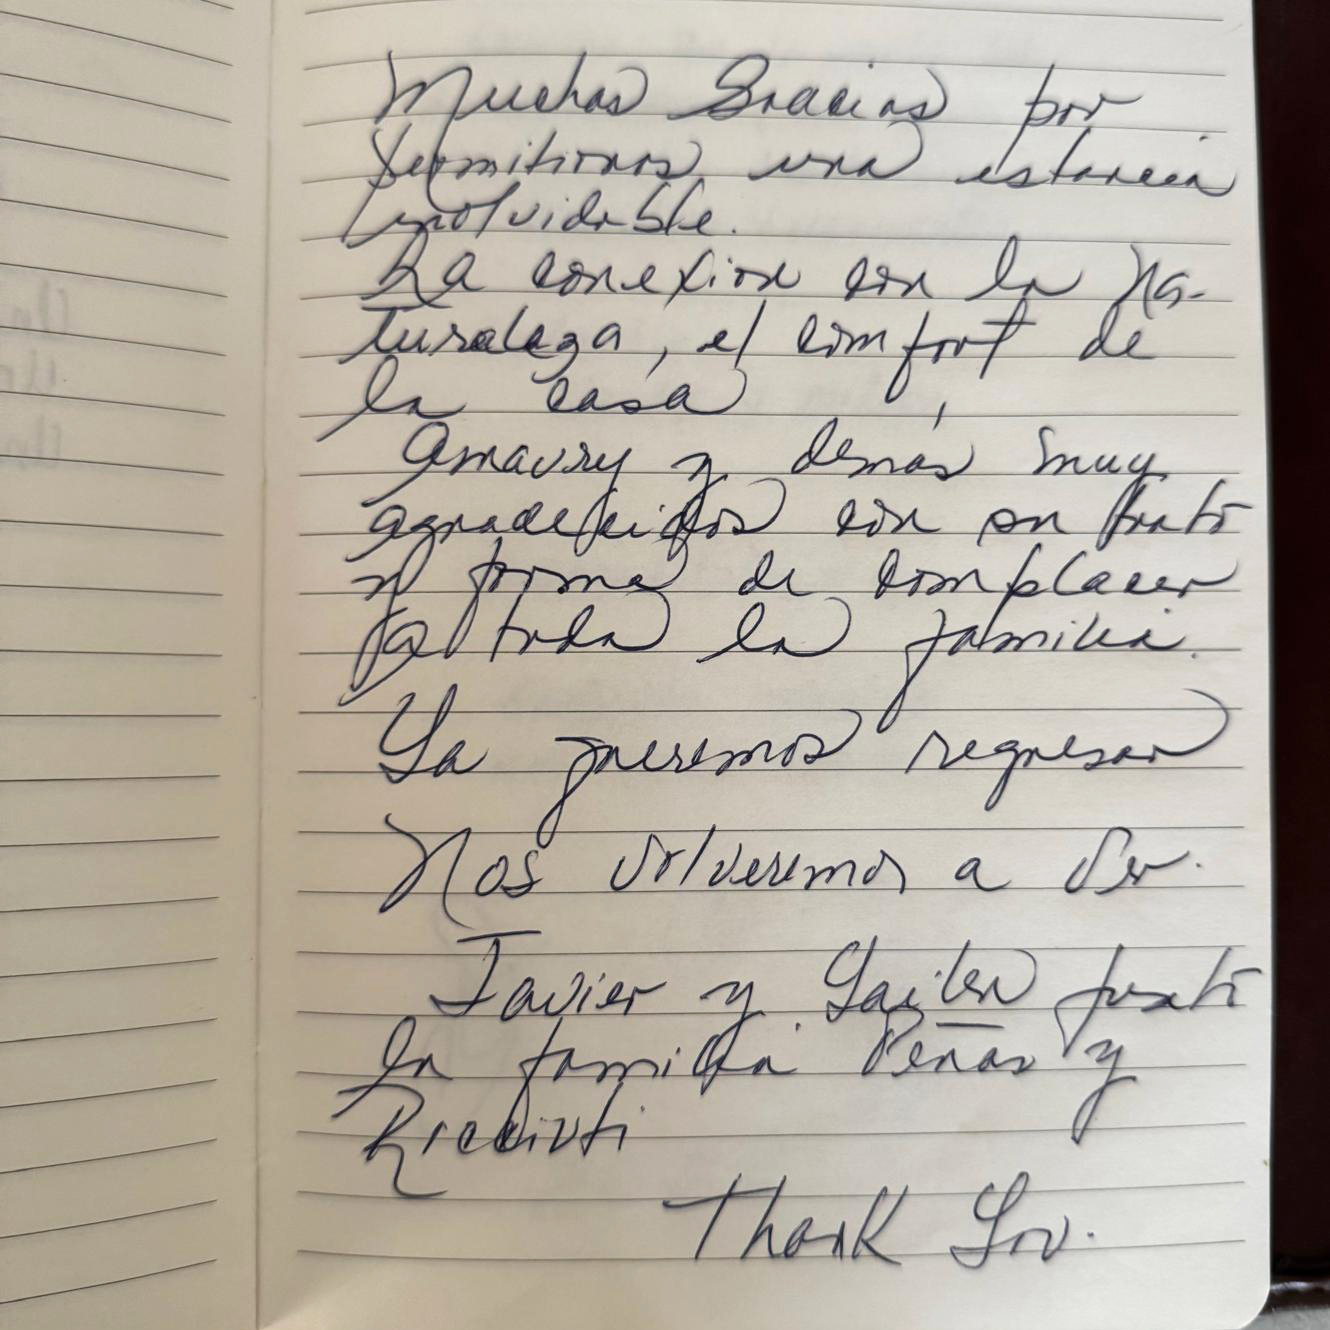 Muchas Gracias por
permitirnos una estancia
inolvidable.
La conexion con la Na-
turaleza, el comfort de
la casa,
Amaury y demás muy
agradecidos con su trato
y forma de complacer
a toda la familia.
Ya queremos regresar
Nos volveremos a ver.
Javier y junto
la familia Peñas y
Thank You.